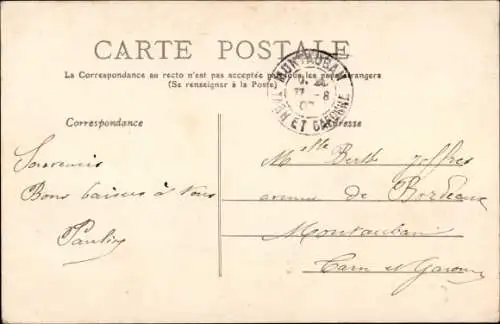 CARTE POSTALE
La Correspondance au recto n'est pas acceptée par tous les pays étrangers
(Se renseigner à la Poste)
MONTAUBAN
TARN ET GARONNE
Correspondance
Adresse
Souvenirs
Bons baisers à tous
Melle Berthe Joffres
avenue de Bordeaux
Montauban
Tarn et Garonne